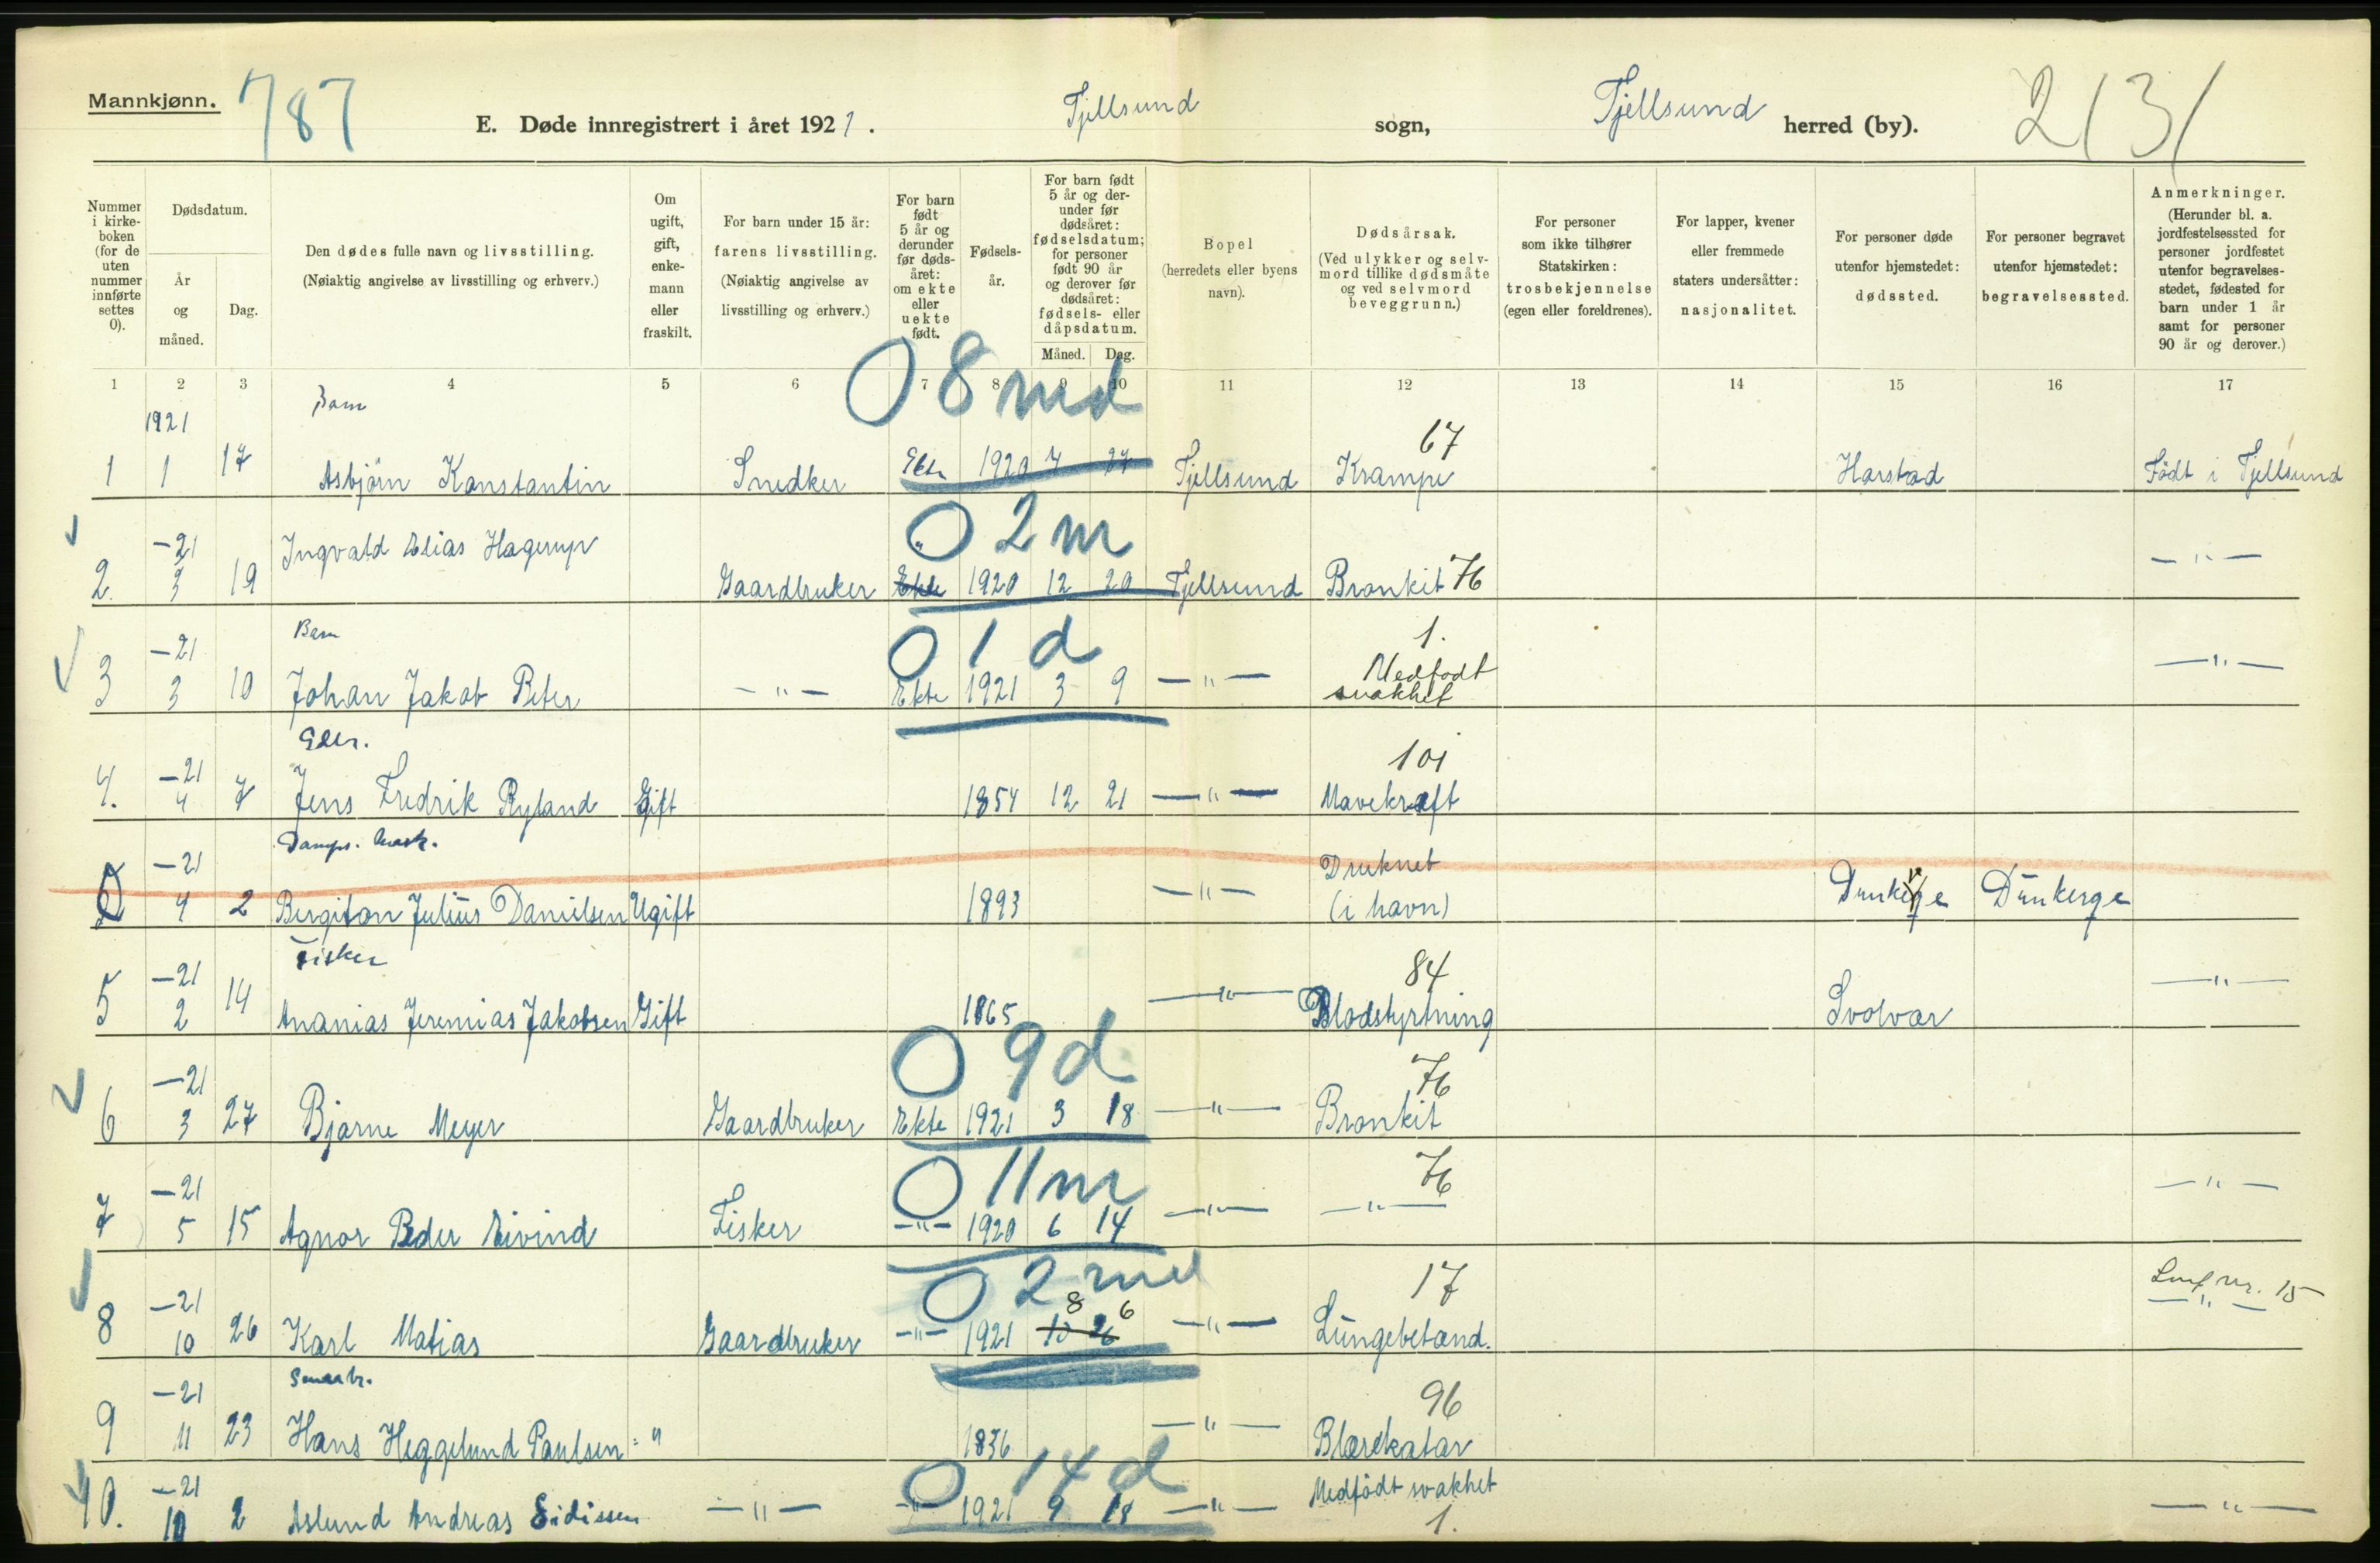 Mannkjønn.
787
E. Døde innregistrert i året 1921.
Tjellsund sogn,
Tjellsund herred (by).
2131
Nummer i kirkeboken (for de uten nummer innførte settes 0).
Dødsdatum.
År og måned.
Dag.
Den dødes fulle navn og livsstilling.
(Nøiaktig angivelse av livsstilling og erhverv.)
Om ugift, gift, enkemann eller fraskilt.
For barn under 15 år: farens livsstilling.
(Nøiaktig angivelse av livsstilling og erhverv.)
For barn født 5 år og derunder før dødsåret: om ekte eller uekte født.
Fødselsår.
For barn født 5 år og derunder før dødsåret: fødselsdatum; for personer født 90 år og derover før dødsåret: fødsels- eller dåpsdatum.
Måned. Dag.
Bopel
(herredets eller byens navn).
Dødsårsak.
(Ved ulykker og selvmord tillike dødsmåte og ved selvmord beveggrunn.)
For personer som ikke tilhører Statskirken: trosbekjennelse (egen eller foreldrenes).
For lapper, kvener eller fremmede staters undersåtter: nasjonalitet.
For personer døde utenfor hjemstedet: dødssted.
For personer begravet utenfor hjemstedet: begravelsessted.
Anmerkninger.
(Herunder bl. a. jordfestelsessted for personer jordfestet utenfor begravelsesstedet, fødested for barn under 1 år samt for personer 90 år og derover.)
1 2 3 4 5 6 7 8 9 10 11 12 13 14 15 16 17
1921 Barn 0 8 md 67
1 1 17 Asbjörn Konstantin Snedker Ekte 1920 7 27 Tjellsund Krampe Harstad Født i Tjellsund
-21 Ingvald Elias Hagerup " 0 2 m —"—
2. 3 19 Gaardbruker Ekte 1920 12 20 Tjellsund Bronkit 76
-21 Barn 0 1 d 1. —"—
3 3 10 Johan Jakob Peter —"— Ekte 1921 3 9 —"— Medfødt svakhet
-21 101
4. 4 7 Jens Fredrik Ryland Gift 1854 12 21 —"— Mavekræft
-21 Damps. Druknet
0 4 2 Bergiton Julius Danielsen Ugift 1893 —"— (i havn) Dunkerge Dünkerge
-21 Fisker 84
5 2 14 Ananias Jeremias Jakobsen Gift 1865 —"— Blodstyrtning Svolvær —"—
-21 0 9 d 76
6 3 27 Bjarne Meyer Gaardbruker Ekte 1921 3 18 —"— Bronkit
-21 0 11 m 76
7 5 15 Agnor Peder Eivind Fisker —"— 1920 6 14 —"— —"— —"—
-21 0 2 md 8 6 17 nr. 15
8 10 26 Karl Matias Gaardbruker —"— 1921 10 26 —"— Lungebetænd. —"—
-21 Smaabr. 96
9 11 23 Hans Heggelund Paulsen " 1836 —"— Blærekatar
-21 0 14 d Medfødt svakhet
10. 10 2 Aslund Andreas Sidissen —"— —"— 1921 9 18 —"— 1. —"—